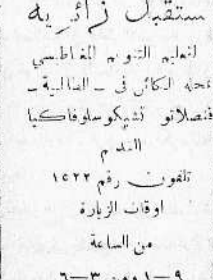 ستقبل زائريه
لتعليم التنويم المغاطيسي
محله الكائن في - الطالبية -
قنصلاتو تشيكوسلوفاكيا
القديم
تلفون رقم ١٥٢٢
اوقات الزيارة
من الساعة
٩-١ ومن ٣-٦